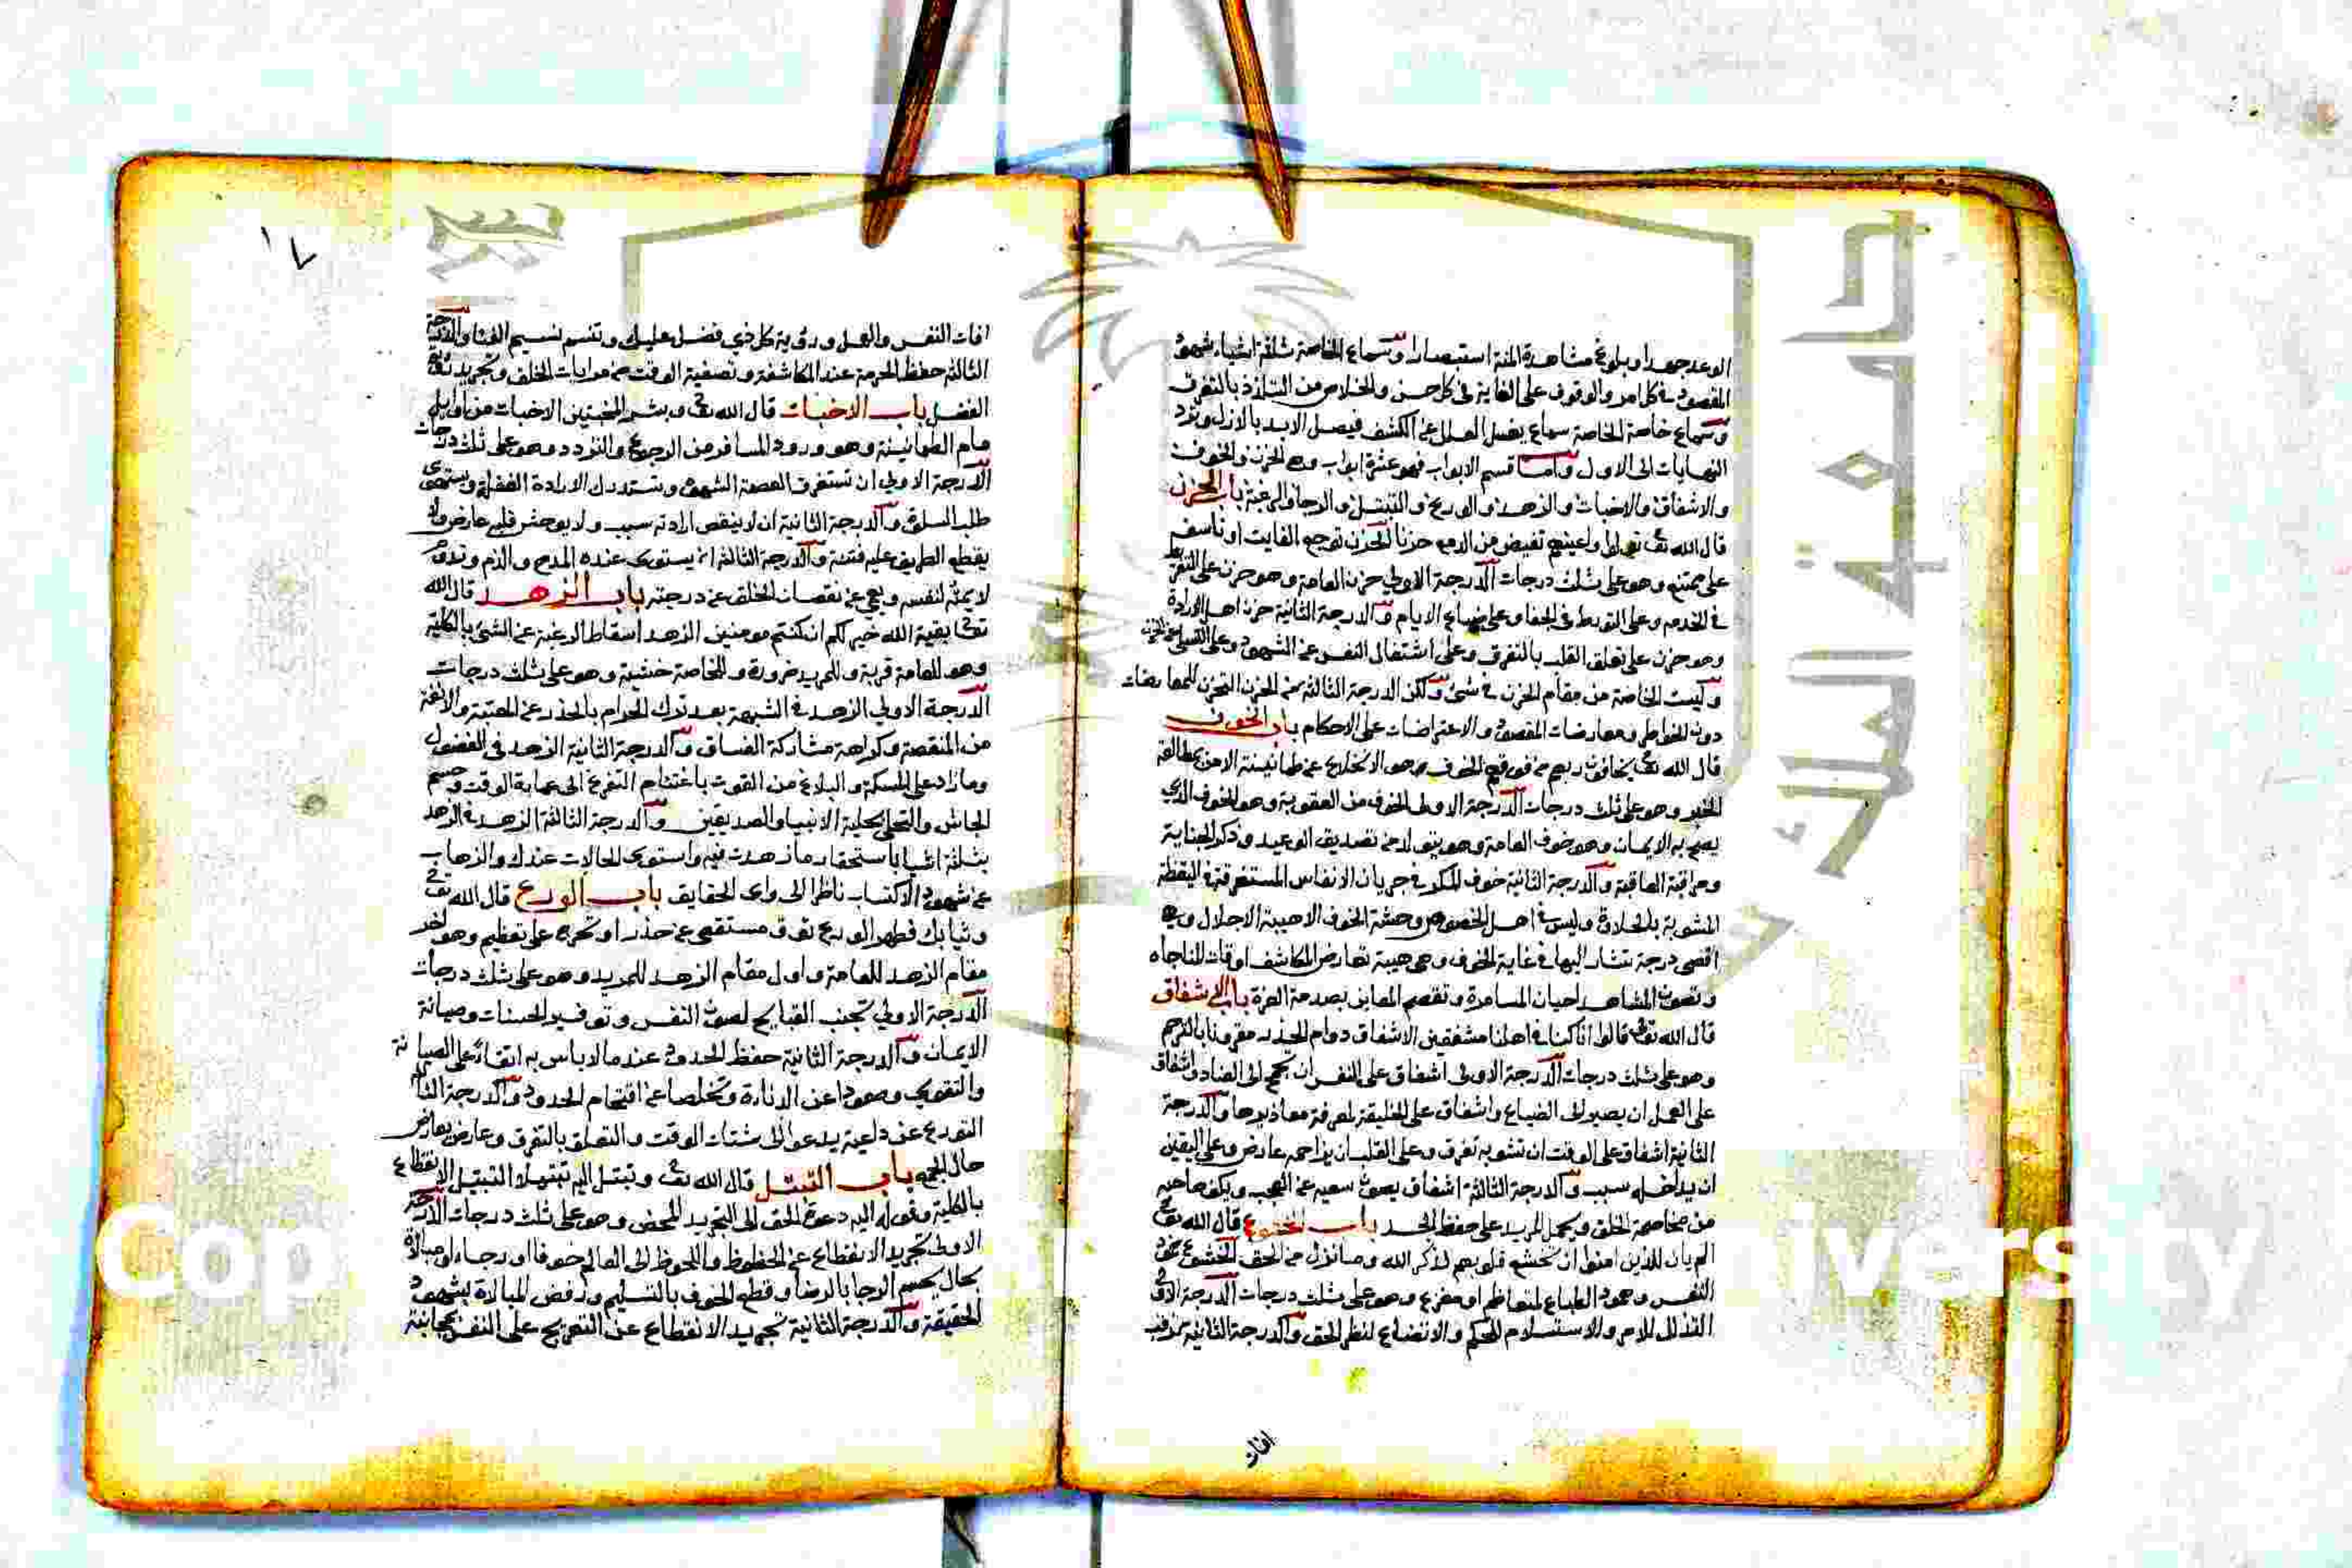 الوعد جهدا وبلوغ مشاهدة المنة استبصارا وسماع الخاصة ثلثة اشياء شهود
المقصود في كل امر والوقوف على الغاية في كل حسن والخلاص من التلذذ بالتفرق
وسماع خاصة الخاصة سماع يغسل العلل عن الكشف فيصل الابد بالازل ويرد
النهايات الى الاول واما قسم الابواب فهو عشرة ابواب وهي الحزن والخوف
والاشفاق والاخبات والزهد والورع والتبتل والرجا والرغبة باب الحزن
قال الله تعالى تولوا واعينهم تفيض من الدمع حزنا الحزن توجع الفايت او تاسف
على ممتنع وهو على ثلث درجات الدرجة الاولى حزن العامة وهو حزن على التفريط
في الخدمة وعلى التورط في الجفا وعلى ضياع الايام والدرجة الثانية حزن اهل الارادة
وهو حزن على تعلق القلب بالتفرق وعلى اشتغال النفس عن الشهود وعلى التسلي عن الحزن
وليست الخاصة من مقام الحزن في شئ ولكن الدرجة الثالثة من الحزن التحزن للمعارضات
دون الخواطر ومعارضات المقصود والاعتراضات على الاحكام باب الخوف
قال الله تعالى يخافون ربهم من فوقهم الخوف هو الانخلاع عن طمانينة الامن بمطالعة
الخبر وهو على ثلث درجات الدرجة الاولى الخوف من العقوبة وهو الخوف الذي
يصح به الايمان وهو خوف العامة وهو يتولد من تصديق الوعيد وذكر الجناية
ومراقبة العاقبة والدرجة الثانية خوف المكر في جريان الانفاس المستغرقة في اليقظة
المشوبة بالحلاوة وليس في اهل الخصوص وحشة الخوف الا هيبة الاجلال وهي
اقصى درجة يشار اليها في غاية الخوف وهي هيبة تعارض المكاشف اوقات المناجاه
وتصون المشاهد احيان المسامرة وتقصم المعاين بصدمة العزة باب الاشفاق
قال الله تعالى قالوا انا كنا في اهلنا مشفقين الاشفاق دوام الحذر مقرونا بالترحم
وهو على ثلث درجات الدرجة الاولى اشفاق على النفس ان تجمح الى العناد واشفاق
على العمل ان يصير الى الضياع واشفاق على الخليقة لمعرفة معاذيرها والدرجة
الثانية اشفاق على الوقت ان تشوبه تفرق وعلى القلب ان يزاحمه عارض وعلى اليقين
ان يداخله سبب والدرجة الثالثة اشفاق يصون سعيه عن العجب ويكف صاحبه
من مخاصمة الخلق ويحمل المريد على حفظ الحد باب الخشوع قال الله تعالى
الم يان للذين امنوا ان تخشع قلوبهم لذكر الله وما نزل من الحق الخشوع خمود
النفس وهمود الطباع لمتعاظم او مفزع وهو على ثلث درجات الدرجة الاولى
التذلل للامر والاستسلام للحكم والاتضاع لنظر الحق والدرجة الثانية ترقب
افات
١٧
افات النفس والعمل ورؤية كل ذي فضل عليك وتنسم نسيم الفنا والدرجة
الثالثة حفظ الحرمة عند المكاشفة وتصفية الوقت من مرايات الخلق وتجريد رؤية
الفضل باب الاخبات قال الله تعالى وبشر المخبتين الاخبات من اوايل
مام الطمانينة وهو ورود المسافر من الرجوع والتردد وهو على ثلث درجات
الدرجة الاولى ان تستغرق العصمة الشهوة وتستدرك الارادة الغفلة ويستهوى
طلب السلوة والدرجة الثانية ان لا ينقص ارادته سبب ولا يوحش قلبه عارض ولا
يقطع الطريق عليه فتنة والدرجة الثالثة ان يستوى عنده المدح والذم وتدوم
لايمته لنفسه ويعمى عن نقصان الخلق عن درجته باب الزهد قال الله
تعالى بقية الله خير لكم ان كنتم مومنين الزهد اسقاط الرغبة عن الشئ بالكلية
وهو للعامة قربة وللمريد ضرورة وللخاصة خشية وهو على ثلث درجات
الدرجة الاولى الزهد في الشبهة بعد ترك الحرام بالحذر عن المعتبة والانفة
من المنقصة وكراهة مشاركة الفساق والدرجة الثانية الزهد في الفضول
وما زاد على المسكة والبلاغ من القوت باغتنام التفرغ الى عمارة الوقت وحسم
الجاش والتحلي بحلية الانبيا والصديقين والدرجة الثالثة الزهد في الزهد
بثلثة اشيا باستحقار ما زهدت فيه واستوى الحالات عندك والذهاب
عن شهود الاكتساب ناظرا الى وادى الحقايق باب الورع قال الله تعالى
وثيابك فطهر الورع توق مستقصى عن حذر او تحرج على تعظيم وهو اخر
مقام الزهد للعامة واول مقام الزهد للمريد وهو على ثلث درجات
الدرجة الاولى تجنب القبايح لصون النفس وتوفير الحسنات وصيانة
الايمان والدرجة الثانية حفظ الحدود عند ما لاباس به ابقاء على الصيانة
والتقوى وصعودا عن الدناءة وتخلصا عن اقتحام الحدود والدرجة الثالثة
التورع عن داعية يدعو الى شتات الوقت والتعلق بالتفرق وعارض يعارض
حال الجمع باب التبتل قال الله تعالى وتبتل اليه تبتيلا التبتيل الانقطاع
بالكلية وقوله اليه دعوة الحق الى التجريد المحض وهو على ثلث درجات الدرجة
الاولى تجريد الانقطاع عن الحظوظ واللحوظ الى العالم خوفا او رجاء او مبالاة
بحال بحسم الرجا بالرضا وقطع الخوف بالتسليم ورفض المبالاة بشهود
الحقيقة والدرجة الثانية تجريد الانقطاع عن التعريج على النفس بمجانبة
جامعة الملك
Cop
versity